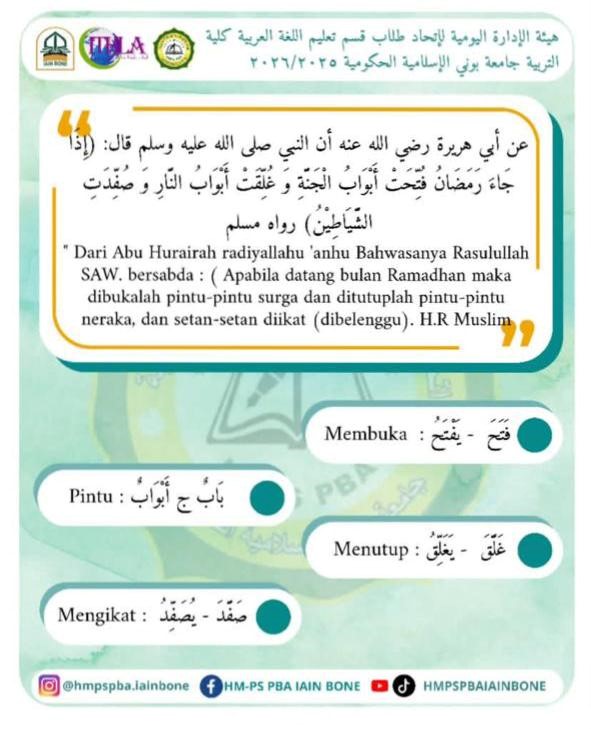 هيئة الإدارة اليومية لإتحاد طلاب قسم تعليم اللغة العربية كلية
التربية جامعة بوني الإسلامية الحكومية ٢٠٢٦/٢٠٢٥
IAIN BONE
عن أبي هريرة رضي الله عنه أن النبي صلى الله عليه وسلم قال: (إِذَا
جَاءَ رَمَضَانُ فُتِّحَتْ أَبْوَابُ الْجَنَّةِ وَ غُلِّقَتْ أَبْوَابُ النَّارِ وَ صُفِّدَتِ
الشَّيَاطِيْنُ) رواه مسلم
" Dari Abu Hurairah radiyallahu 'anhu Bahwasanya Rasulullah
SAW. bersabda : ( Apabila datang bulan Ramadhan maka
dibukalah pintu-pintu surga dan ditutuplah pintu-pintu
neraka, dan setan-setan diikat (dibelenggu). H.R Muslim
فَتَحَ - يَفْتَحُ : Membuka
بَابٌ ج أَبْوَابٌ : Pintu
غَلَّقَ - يَغَلِّقُ : Menutup
صَفَّدَ - يُصَفِّدُ : Mengikat
@hmpspba.iainbone HM-PS PBA IAIN BONE HMPSPBAIAINBONE